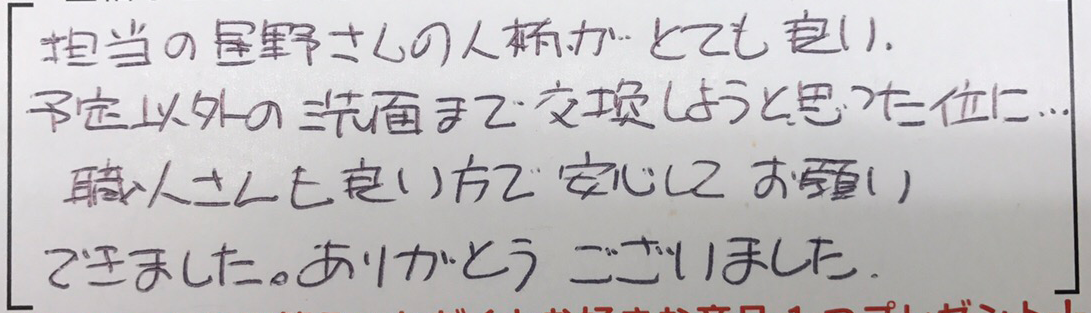 担当の星野さんの人柄がとても良い.
予定以外の洗面まで交換しようと思った位に…
職人さんも良い方で安心してお願い
できました。ありがとうございました.
お好きな商品1つプレゼント!